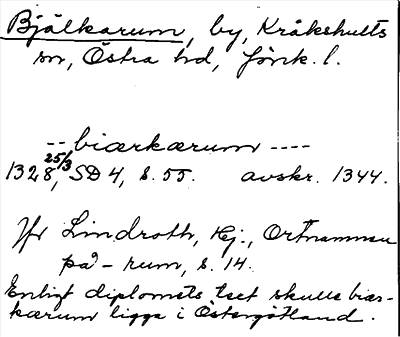 Bjälkarum, by, Kråkshults
sn, Östra hd, Jönk. l.
-- biærkærum ----
1328 25/3, SD 4, s. 55. avskr. 1344.
Jfr Lindroth, Hj., Ortnamnen
på - rum, s. 14.
Enligt diplomets text skulle biær-
kærum ligga i Östergötland.